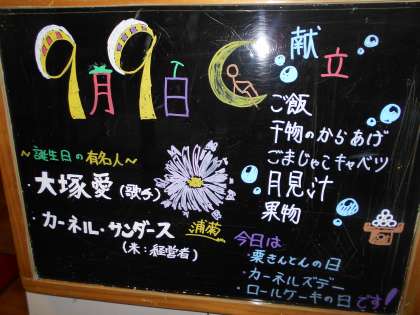 9月9日
献立
ご飯
干物のからあげ
ごまじゃこキャベツ
月見汁
果物
～誕生日の有名人～
・大塚愛(歌手)
・カーネル・サンダース
(米:経営者)
浦菊
今日は
・栗きんとんの日
・カーネルズデー
・ロールケーキの日です!